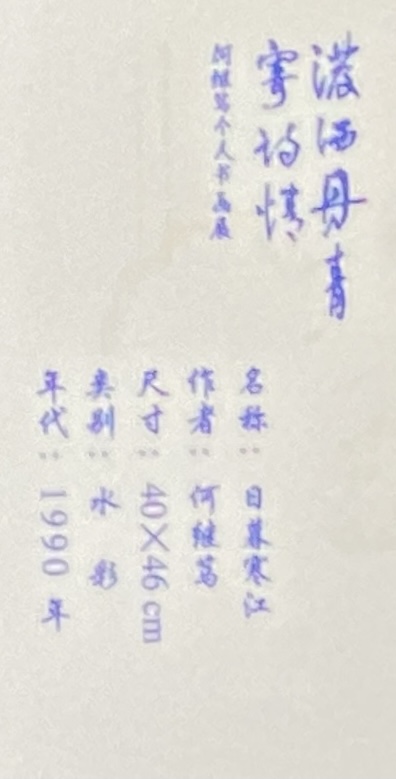 潑洒丹青
寄诗情
何继笃个人书画展
名称：日暮寒江
作者：何继笃
尺寸：40×46 cm
类别：水 彩
年代：1990 年